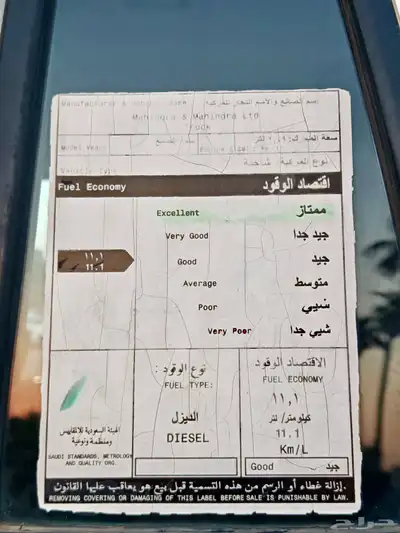 Mahindra & Mahindra Ltd
سعة المحرك
Model Year
نوع المركبة شاحنة
Vehicle Type
Fuel Economy اقتصاد الوقود
Excellent ممتاز
Very Good جيد جدا
Good جيد
١١,١
11.1
Average متوسط
Poor سيئ
Very Poor سيئ جدا
نوع الوقود :
FUEL TYPE:
الديزل
DIESEL
الاقتصاد الوقود
FUEL ECONOMY
١١,١
كيلومتر/ لتر
11.1
Km/L
Good جيد
SAUDI STANDARDS, METROLOGY
AND QUALITY ORG.
إزالة غطاء أو الرسم من هذه التسمية قبل بيع هو يعاقب عليها القانون.
REMOVING COVERING OR DAMAGING OF THIS LABEL BEFORE SALE IS PUNISHABLE BY LAW.
حراج